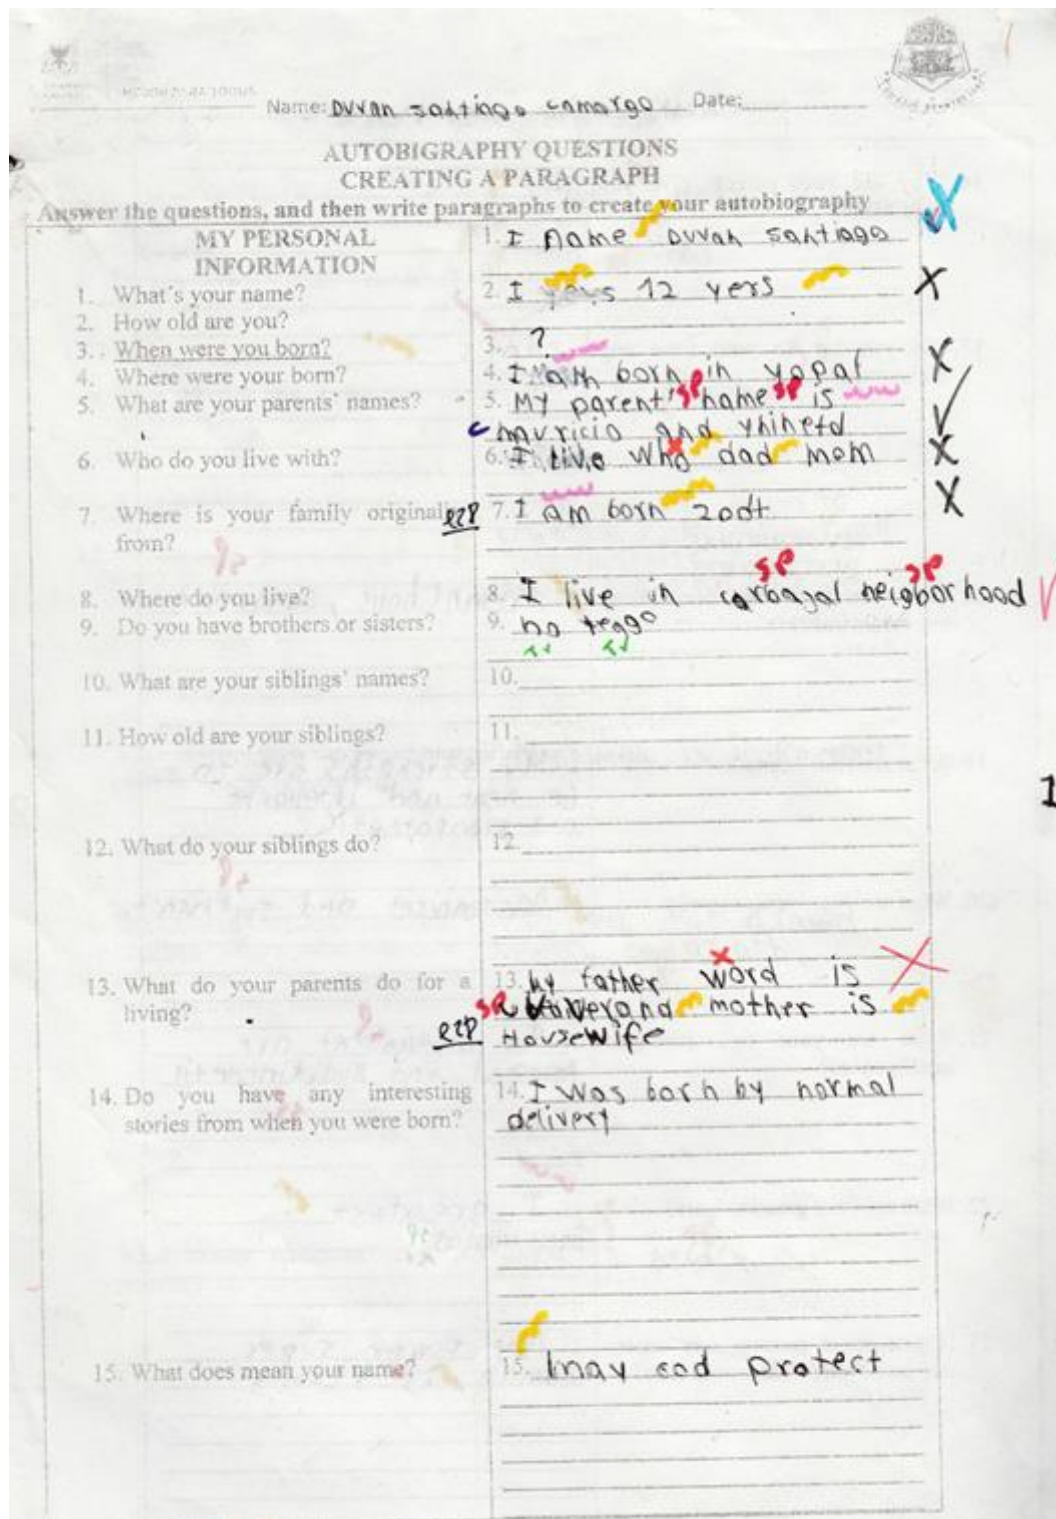 Name: Duvan santiago camargo Date:
AUTOBIGRAPHY QUESTIONS
CREATING A PARAGRAPH
Answer the questions, and then write paragraphs to create your autobiography
MY PERSONAL
INFORMATION
1. What's your name?
2. How old are you?
3. When were you born?
4. Where were your born?
5. What are your parents' names?
6. Who do you live with?
7. Where is your family original
from?
8. Where do you live?
9. Do you have brothers or sisters?
10. What are your siblings' names?
11. How old are your siblings?
12. What do your siblings do?
13. What do your parents do for a
living?
14. Do you have any interesting
stories from when you were born?
15. What does mean your name?
1. I name Duvan santiago
2. I years 12 yers
3. ?
4. I am born in yopal
SP SP
5. My parent's name is
mauricio and
6. I live who dad mom
7. I am born
SP SP
8. I live in neigborhood
9. no teggo
10.
11.
12.
13. My father word is
SP and mother is
Housewife
14. I was born by normal
delivery
15. may protect
1